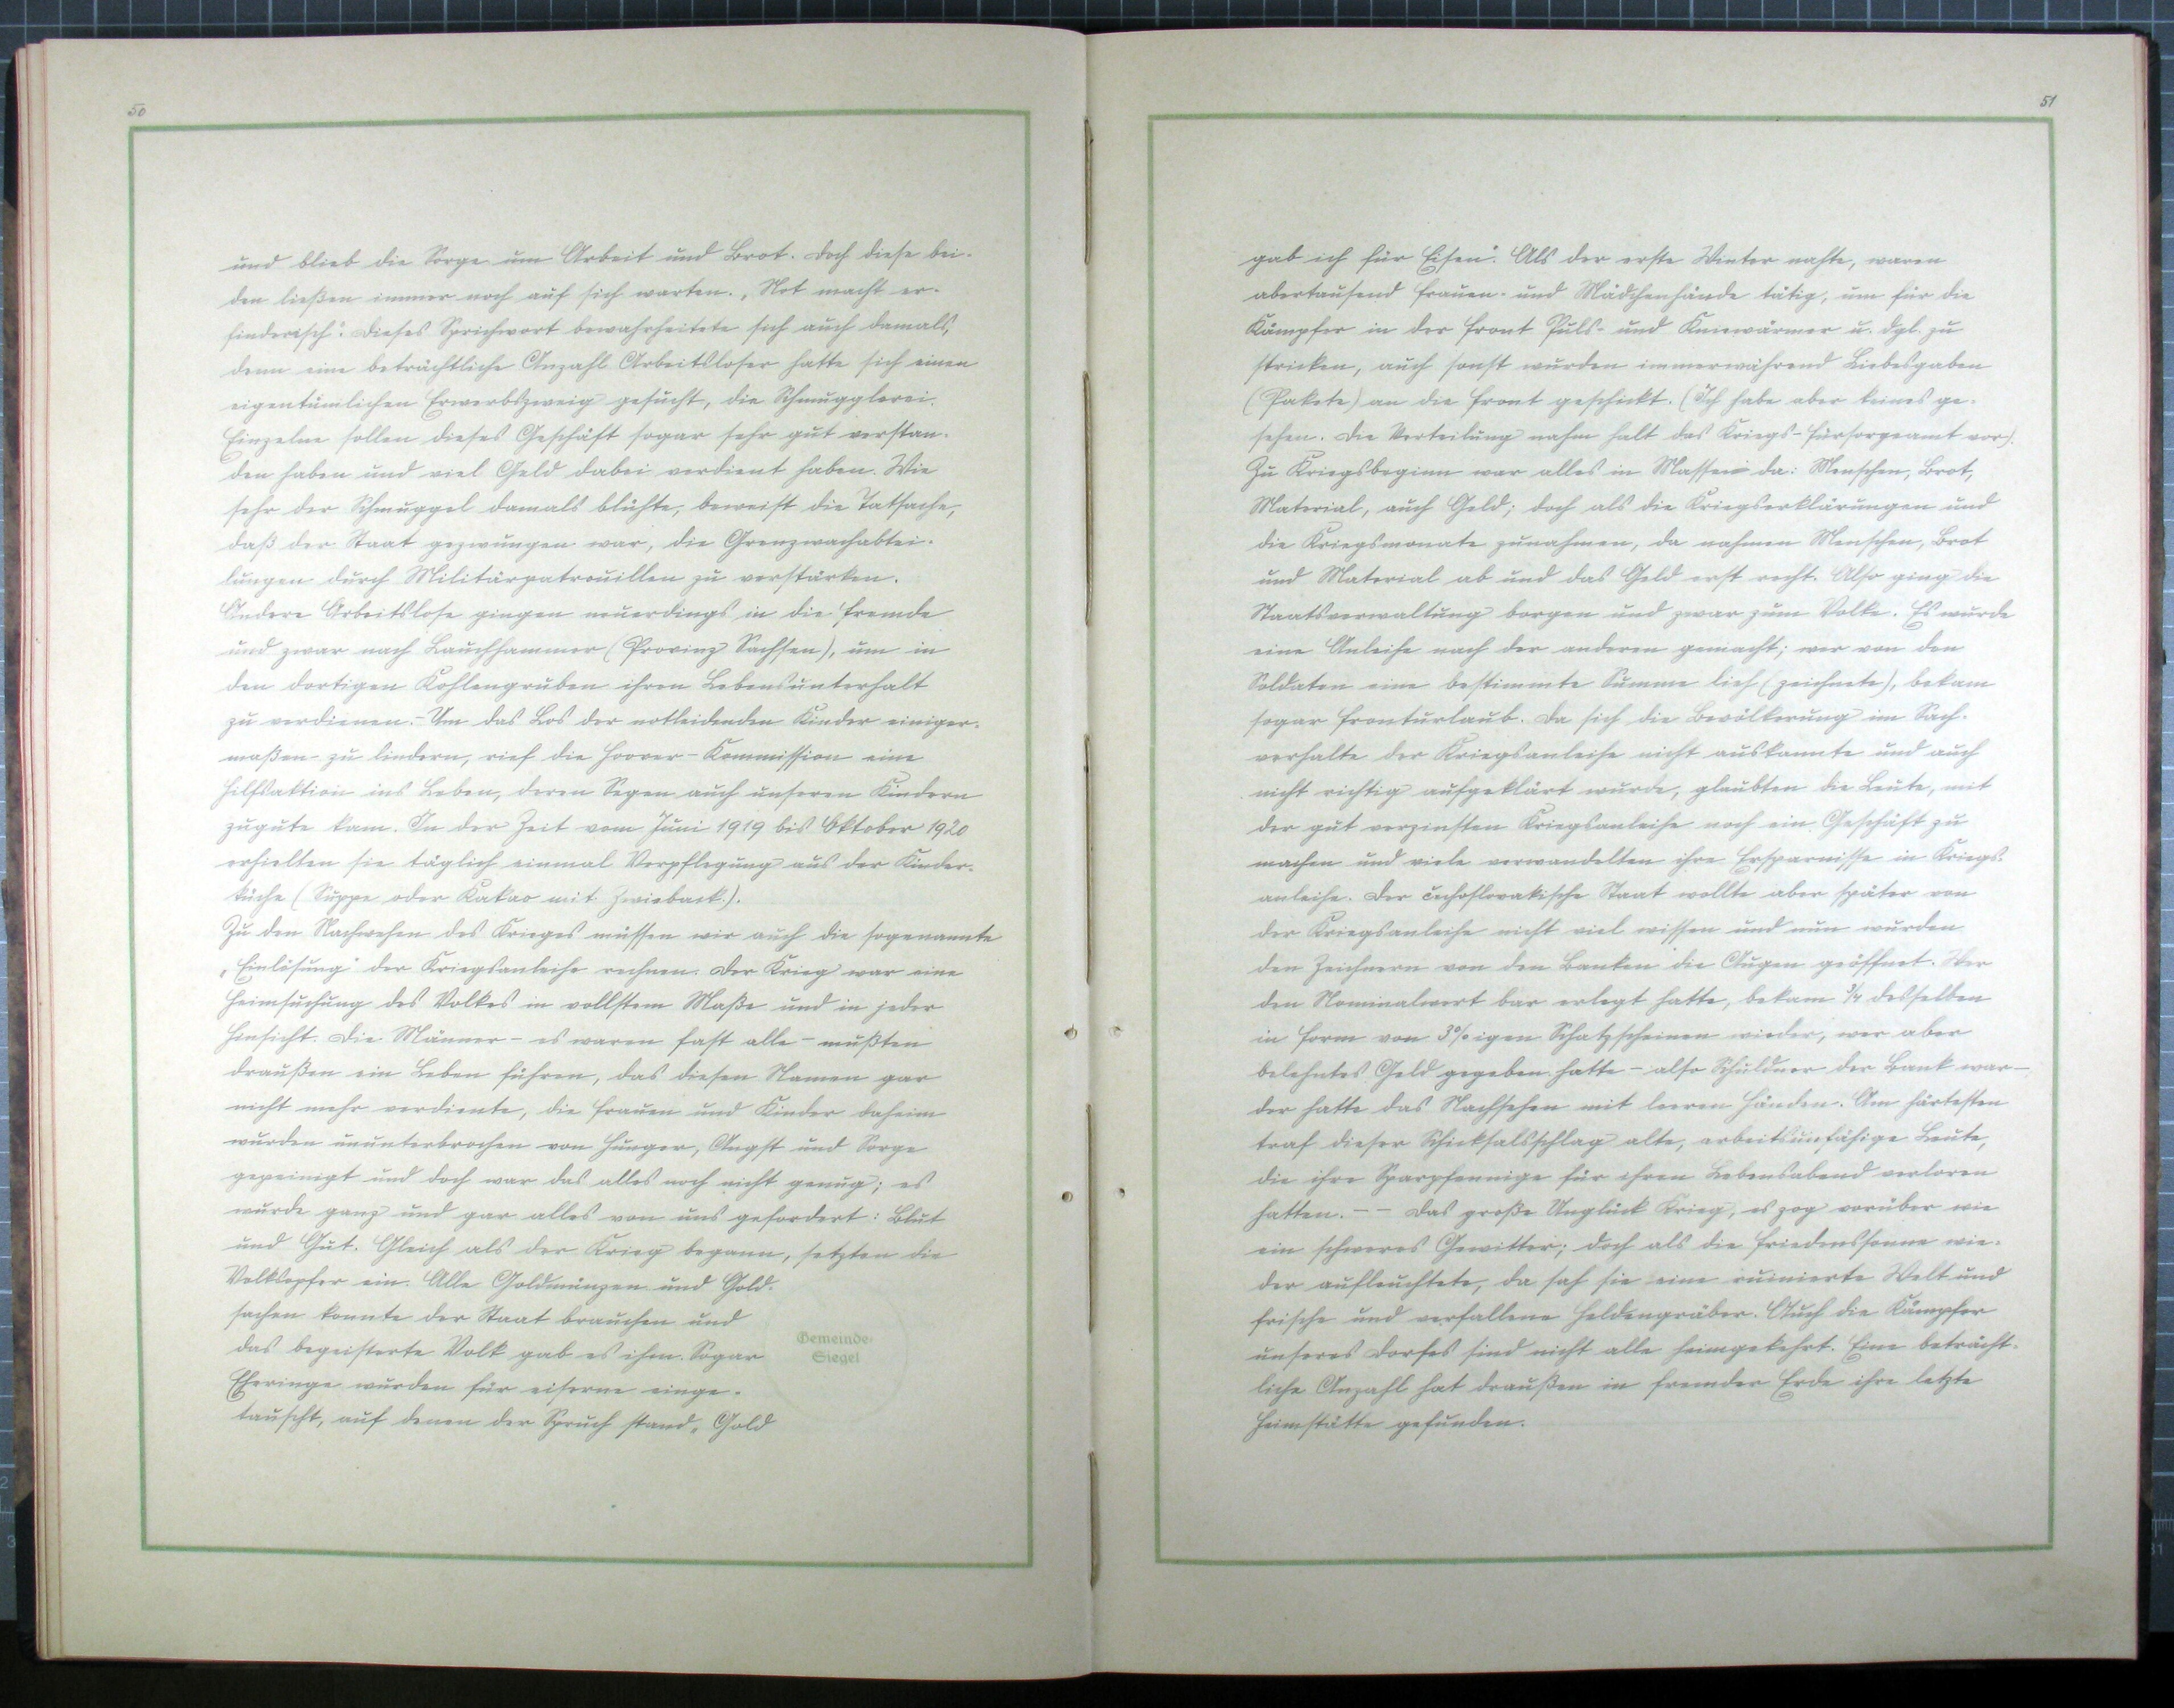 50
und blieb die Sorge um Arbeit und Brot. Doch diese bei-
den ließen immer noch auf sich warten. „Not macht er-
finderisch“. Dieses Sprichwort bewahrheitete sich auch damals,
denn eine beträchtliche Anzahl Arbeitsloser hatte sich einen
eigentümlichen Erwerbszweig gesucht, die Schmugglerei.
Einzelne sollen dieses Geschäft sogar sehr gut verstan-
den haben und viel Geld dabei verdient haben. Wie
sehr der Schmuggel damals blühte, beweist die Tatsache,
daß der Staat gezwungen war, die Grenzwachabtei-
lungen durch Militärpatrouillen zu verstärken.
Andere Arbeitslose gingen neuerdings in die Fremde
und zwar nach Lauchhammer (Provinz Sachsen), um in
den dortigen Kohlengruben ihren Lebensunterhalt
zu verdienen. - Um das Los der notleidenden Kinder einiger-
maßen zu lindern, rief die Hoover-Kommission eine
Hilfsaktion ins Leben, deren Segen auch unseren Kindern
zugute kam. In der Zeit vom Juni 1919 bis Oktober 1920
erhielten sie täglich einmal Verpflegung aus der Kinder-
küche (Suppe oder Kakao mit Zwieback.).
Zu den Nachwehen des Krieges müssen wir auch die sogenannte
„Einlösung“ der Kriegsanleihe rechnen. Der Krieg war eine
Heimsuchung des Volkes in vollstem Maße und in jeder
Hinsicht. Die Männer - es waren fast alle - mußten
draußen ein Leben führen, das diesen Namen gar
nicht mehr verdiente, die Frauen und Kinder daheim
wurden ununterbrochen von Hunger, Angst und Sorge
gepeinigt und doch war das alles noch nicht genug; es
wurde ganz und gar alles von uns gefordert: Blut
und Gut. Gleich als der Krieg begann, setzten die
Volksopfer ein. Alle Goldmünzen und Gold-
sachen konnte der Staat brauchen und
das begeisterte Volk gab es ihm. Sogar
Eheringe wurden für eiserne einge-
tauscht, auf denen der Spruch stand „Gold
Gemeinde-
Siegel
51
gab ich für Eisen“. Als der erste Winter nahte, waren
abertausend Frauen- und Mädchenhände tätig, um für die
Kämpfer in der Front Puls- und Kniewärmer u. dgl. zu
stricken, auch sonst wurden immerwährend Liebesgaben
(Pakete) an die Front geschickt. (Ich habe aber keines ge-
sehen. Die Verteilung nahm halt das Kriegs-Fürsorgeamt vor).
Zu Kriegsbeginn war alles in Massen da: Menschen, Brot,
Material, auch Geld; doch als die Kriegserklärungen und
die Kriegsmonate zunahmen, da nahmen Menschen, Brot
und Material ab und das Geld erst recht. Also ging die
Staatsverwaltung borgen und zwar zum Volke. Es wurde
eine Anleihe nach der anderen gemacht; wer von den
Soldaten eine bestimmte Summe lieh (zeichnete), bekam
sogar Fronturlaub. Da sich die Bevölkerung im Sach-
verhalte der Kriegsanleihe nicht auskannte und auch
nicht richtig aufgeklärt wurde, glaubten die Leute, mit
der gut verzinsten Kriegsanleihe noch ein Geschäft zu
machen und viele verwandelten ihre Ersparnisse in Kriegs-
anleihe. Der čechoslovakische Staat wollte aber später von
der Kriegsanleihe nicht viel wissen und nun wurden
den Zeichnern von den Banken die Augen geöffnet. Wer
den Nominalwert bar erlegt hatte, bekam ¾ desselben
in Form von 3%igen Schatzscheinen wieder, wer aber
belehntes Geld gegeben hatte - also Schuldner der Bank war -
der hatte das Nachsehen mit leeren Händen. Am härtesten
traf dieser Schicksalsschlag alte, arbeitsunfähige Leute,
die ihre Sparpfennige für ihren Lebensabend verloren
hatten. - - Das große Unglück Krieg, es zog vorüber wie
ein schweres Gewitter; doch als die Friedenssonne wie-
der aufleuchtete, da sah sie eine ruinierte Welt und
frische und verfallene Heldengräber. Auch die Kämpfer
unseres Dorfes sind nicht alle heimgekehrt. Eine beträcht-
liche Anzahl hat draußen in fremder Erde ihre letzte
Heimstätte gefunden.